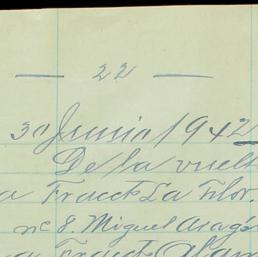 — 22 —
30 Junio 1942
De la vuelt
a Fracck La Flor.
nc 8. Miguel Aragó
a